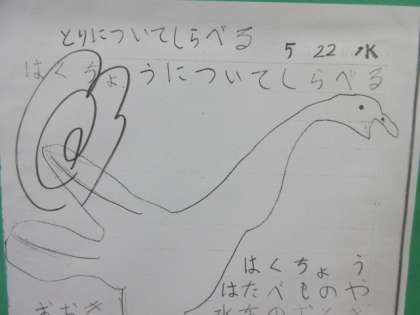 とりについてしらべる
5 22 水
はくちょうについてしらべる
はくちょう
はたべものや
おおき
水